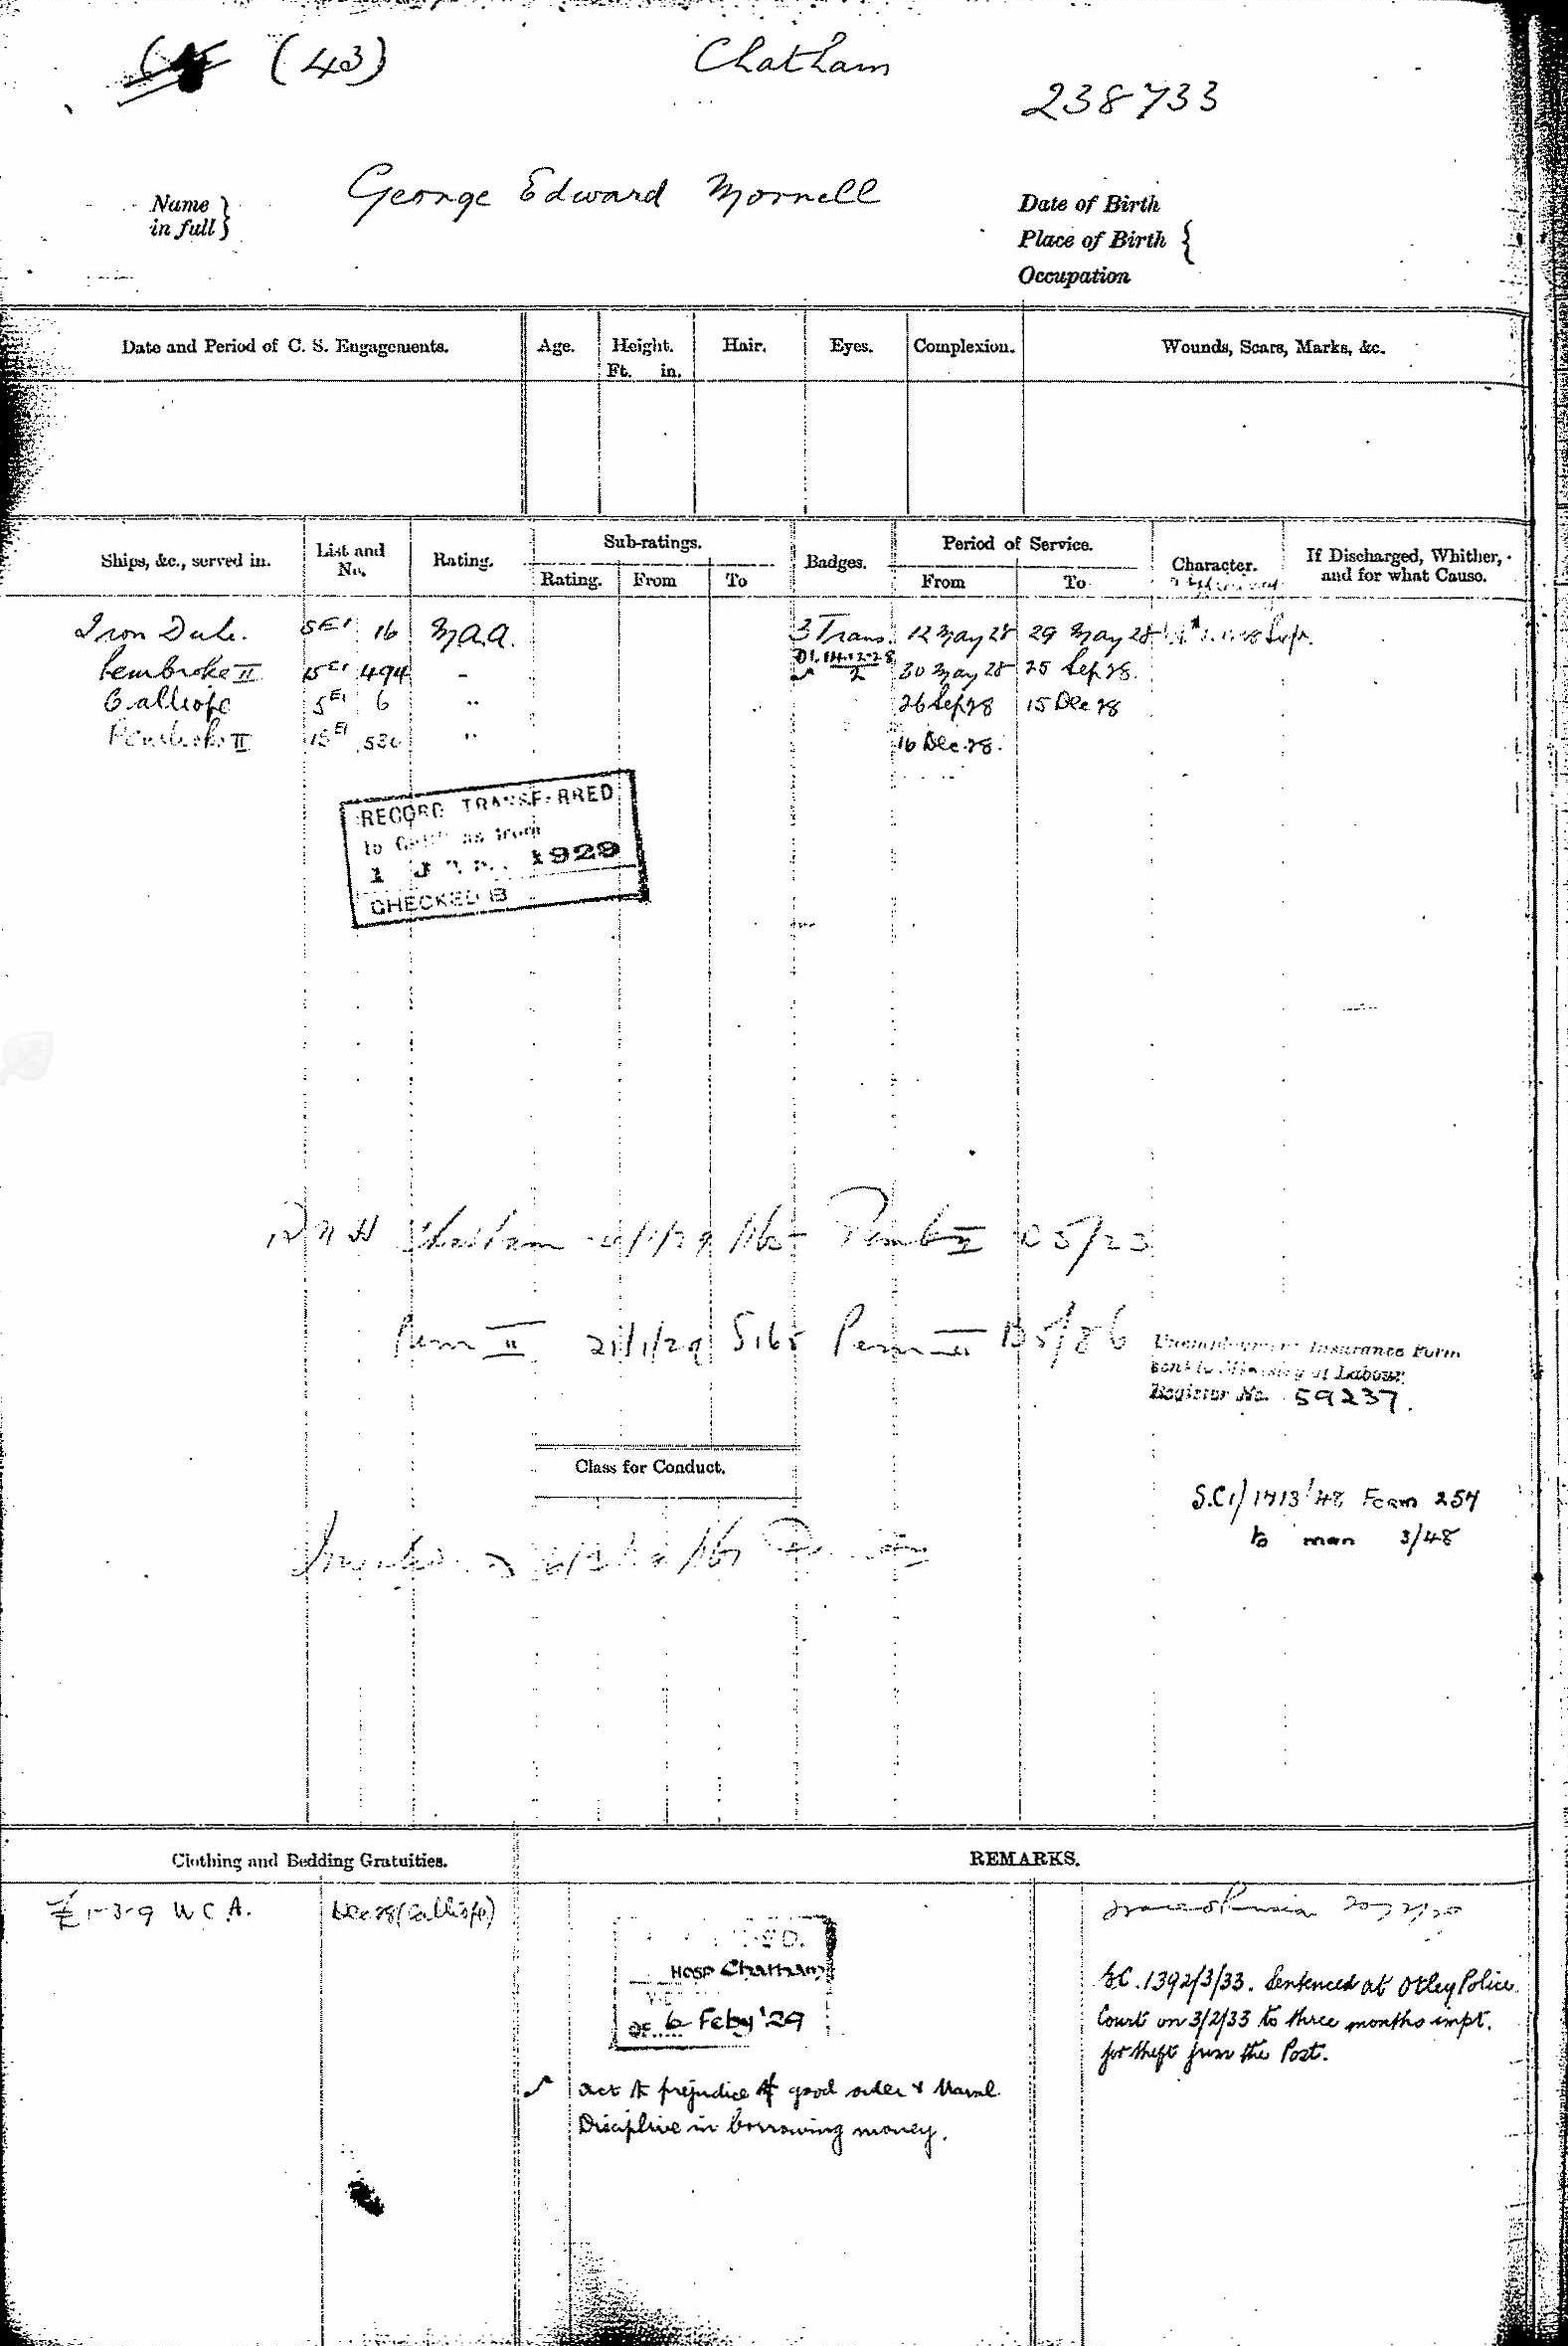 (43)
Chatham
238733
Name in full } George Edward Mornell
Date of Birth
Place of Birth {
Occupation
Date and Period of C. S. Engagements. Age. Height. Ft. in. Hair. Eyes. Complexion. Wounds, Scars, Marks, &c.
Ships, &c., served in. List and No. Rating. Sub-ratings. Rating. From To Badges. Period of Service. From To Character. If Discharged, Whither, and for what Cause.
Iron Duke. 5E1 16 M.A.A. 3 Trans. 12 May 28 29 May 28
D1. 14.12.28
Pembroke II 15E1 494 - 2 30 May 28 25 Sep 28.
Calliope 5E1 6 " 26 Sep 28 15 Dec 28
Pembroke II 15E1 " 16 Dec. 28.
RECORD TRANSFERRED
to as from
1 1929
CHECKED B
R N H Chatham /1/29 Pemb II 5/23
Pem II 21/1/29 S165 Pem II 15/86
Unemployment Insurance Form
sent to Ministry of Labour.
Register No. 59237.
Class for Conduct.
S.C.1/1413/48 Form 254
to man 3/48
Clothing and Bedding Gratuities. REMARKS.
£1-3-9 W C A. Dec 28 (Calliope)
HOSP Chatham
6 Feby '29
Act to prejudice of good order & Naval
Discipline in borrowing money.
S.C. 1392/3/33. Sentenced at Otley Police
Court on 3/2/33 to three months impt.
for theft from the Post.